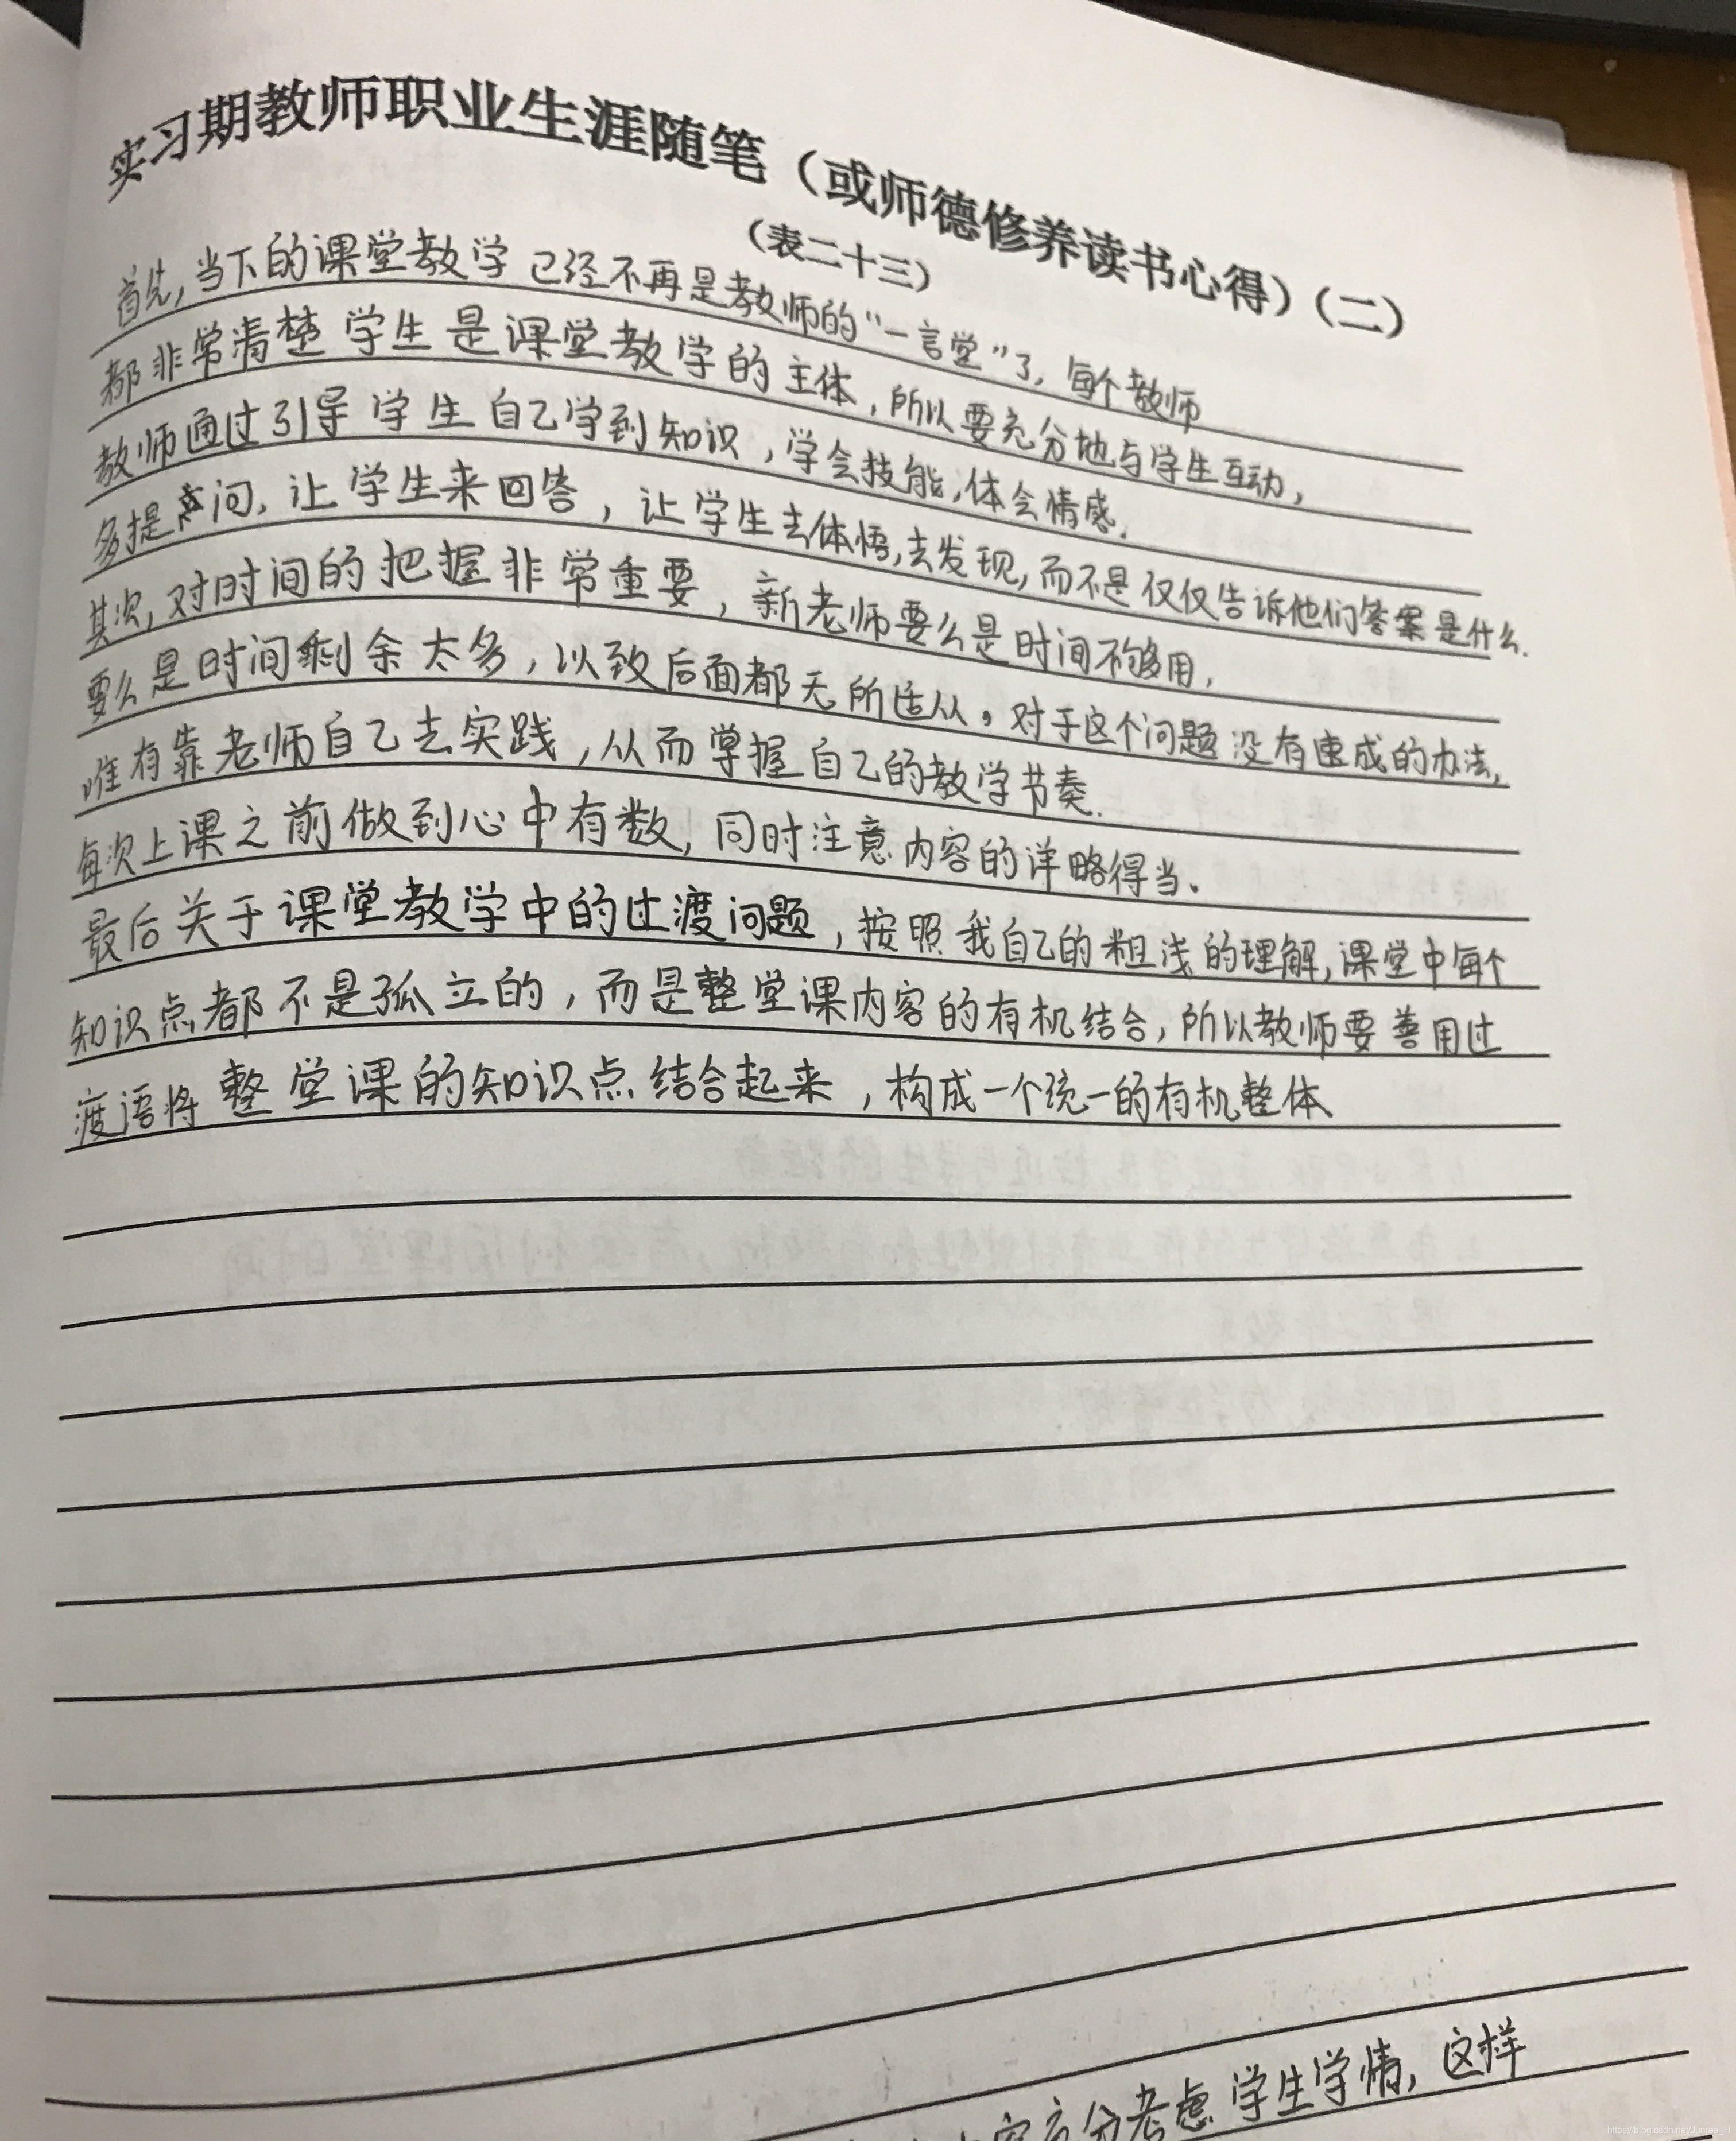 实习期教师职业生涯随笔（或师德修养读书心得）（二）
（表二十三）
首先,当下的课堂教学已经不再是教师的“一言堂”了,每个教师
都非常清楚学生是课堂教学的主体,所以要充分地与学生互动,
教师通过引导学生自己学到知识,学会技能,体会情感.
多提问,让学生来回答,让学生去体悟,去发现,而不是仅仅告诉他们答案是什么.
其次,对时间的把握非常重要,新老师要么是时间不够用,
要么是时间剩余太多,以致后面都无所适从。对于这个问题没有速成的办法,
唯有靠老师自己去实践,从而掌握自己的教学节奏.
每次上课之前做到心中有数,同时注意内容的详略得当.
最后关于课堂教学中的过渡问题,按照我自己的粗浅的理解,课堂中每个
知识点都不是孤立的,而是整堂课内容的有机结合,所以教师要善用过
渡语将整堂课的知识点结合起来,构成一个统一的有机整体
分考虑学生学情,这样